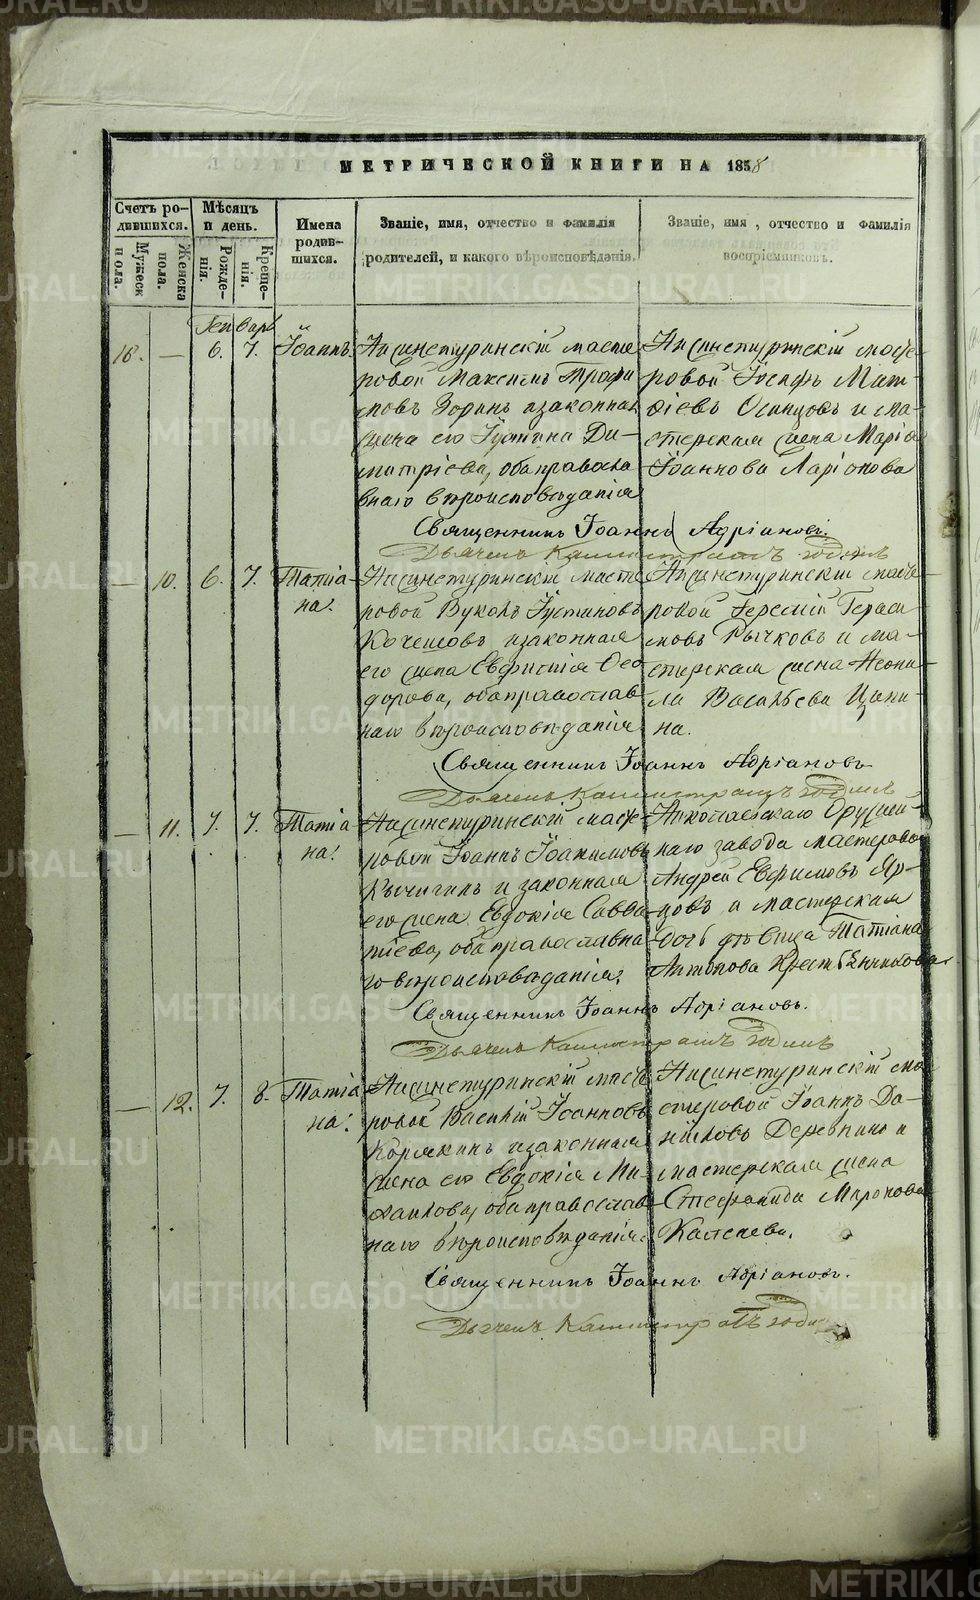 МЕТРИЧЕСКОЙ КНИГИ НА 1858
Счетъ ро-
дившихся.
Мужеск
пола.
Женска
пола.
Мѣсяцъ
и день.
Рожде-
нія.
Креще-
нія.
Имена
родив-
шихся.
Званіе, имя, отчество и фамилія
родителей, и какого вѣроисповѣданія.
Званіе, имя, отчество и фамилія
воспріемниковъ.
Генварь
18. — 6. 7. Іоаннъ.
Нисинетуринскій масте
ровой Максимъ Трофи
мовъ Зоринъ изаконная
жена его Іустина Ди-
митріева, обаправосла
внаго вѣроисповѣданія
Нисинетуринскій масте-
ровой Іосифъ Мат-
ѳіевъ Осинцовъ и ма-
стерская жена Марія
Іоаннова Ларіонова
Священникъ Іоаннъ Адріановъ.
Дьячекъ Каллистратъ
— 10. 6. 7. Татіа-
на.
Нисинетуринскій масте
ровой Вуколъ Іустиновъ
изаконная
его жена Евфимія Ѳео
дорова, обаправослав
наго вѣроисповѣданія
Нисинетуринскій масте-
ровой Терентій Гераси
мовъ Рычковъ и ма-
стерская жена Неони-
ла Васильева Цыпи-
на.
Священникъ Іоаннъ Адріановъ
Дьячекъ Каллистратъ
— 11. 7. 7. Татіа
на.
Нисинетуринскій масте
ровой Іоаннъ Іоакимовъ
Кычигинъ и законная
его жена Евдокія Савва
тіева, оба православна
го вѣроисповѣданія.
Николаевскаго Оружей-
наго завода мастеровой
Андрей Евфимовъ Яр-
цовъ и мастерская
дочь дѣвица Татіана
Антонова
Священникъ Іоаннъ Адріановъ.
Дьячекъ Каллистратъ
— 12. 7. 8. Татіа
на.
Нисинетуринскій масте
ровой Василій Іоанновъ
Корякинъ изаконная
жена его Евдокія Ми-
хаилова, оба православ
наго вѣроисповѣданія.
Нисинетуринскій ма
стеровой Іоаннъ Да-
ніиловъ и
мастерская жена
Стефанида Миронова
Священникъ Іоаннъ Адріановъ.
Дьячекъ Каллистратъ
METRIKI.GASO-URAL.RU